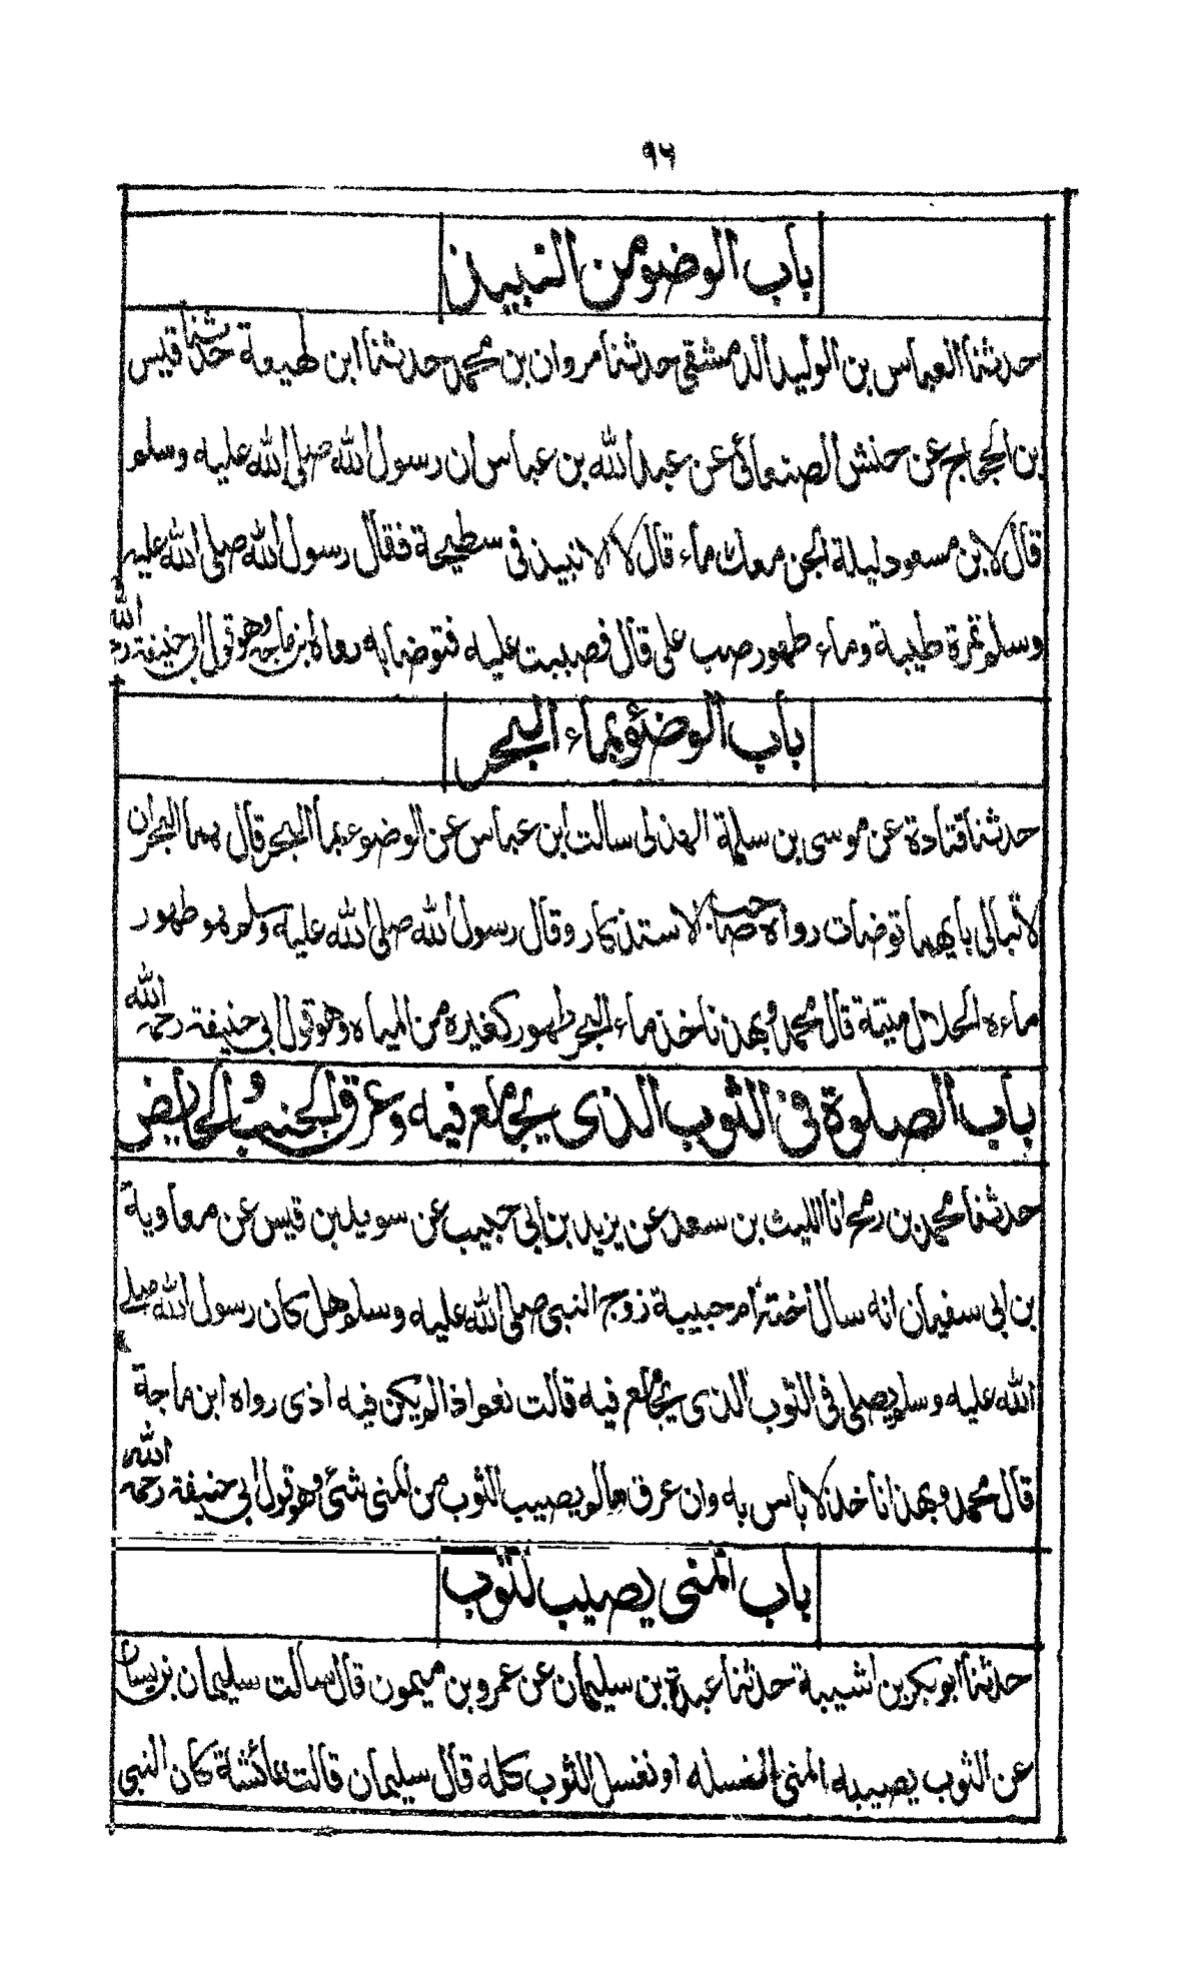 ٩٦
باب الوضو من النبيذ
حدثنا العباس بن الوليد الدمشقي حدثنا مروان بن محمد حدثنا ابن لهيعة حدثنا قيس
بن الحجاج عن حنش الصنعاني عن عبد الله بن عباس ان رسول الله صلى الله عليه وسلم
قال لابن مسعود ليلة الجن معك ماء قال لا الا نبيذ في سطيحة فقال رسول الله صلى الله عليه
وسلم تمرة طيبة وماء طهور صب علي قال فصببت عليه فتوضا به رواه ابن ماجه وهو قول ابي حنيفة رحمه الله
باب الوضؤ بماء البحر
حدثنا قتادة عن موسى بن سلمة الهذلي سالت ابن عباس عن الوضوء بماء البحر قال هما البحران
لا تبالي بايهما توضات رواه صاحب الاستذكار وقال رسول الله صلى الله عليه وسلم هو طهور
ماءه الحلال ميتة قال محمد وبهذا ناخذ ماء البحر طهور كغيره من المياه وهو قول ابي حنيفة رحمه الله
باب الصلوة في الثوب الذي يجامع فيه وعرق الجنب والحائض
حدثنا محمد بن رمح انا الليث بن سعد عن يزيد بن ابي حبيب عن سويد بن قيس عن معاوية
بن ابي سفيان انه سال اخته ام حبيبة زوج النبي صلى الله عليه وسلم هل كان رسول الله صلى
الله عليه وسلم يصلي في الثوب الذي يجامع فيه قالت نعم اذا لم يكن فيه اذى رواه ابن ماجة
قال محمد وبهذا ناخذ لا باس به وان عرق مالم يصيب الثوب من المني شئ وهو قول ابي حنيفة رحمه الله
باب المني يصيب لثوب
حدثنا ابو بكر بن اشيبة حدثنا عبدة بن سليمان عن عمرو بن ميمون قال سالت سليمان بن يسار
عن الثوب يصيبه المني انغسله او نغسل الثوب كله قال سليمان قالت عائشة كان النبي